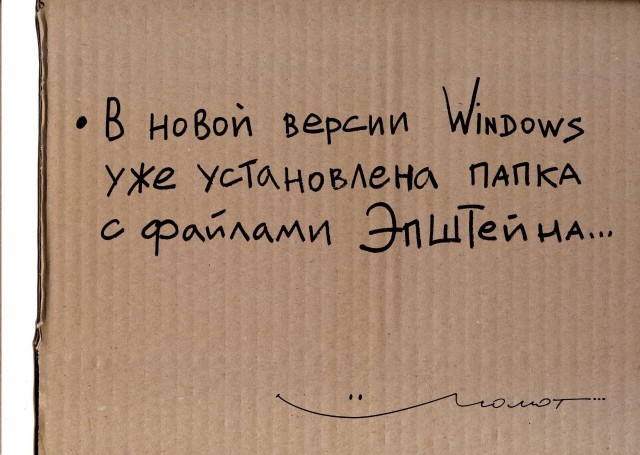 • В новой версии Windows
уже установлена папка
с файлами Эпштейна...
Чомот...